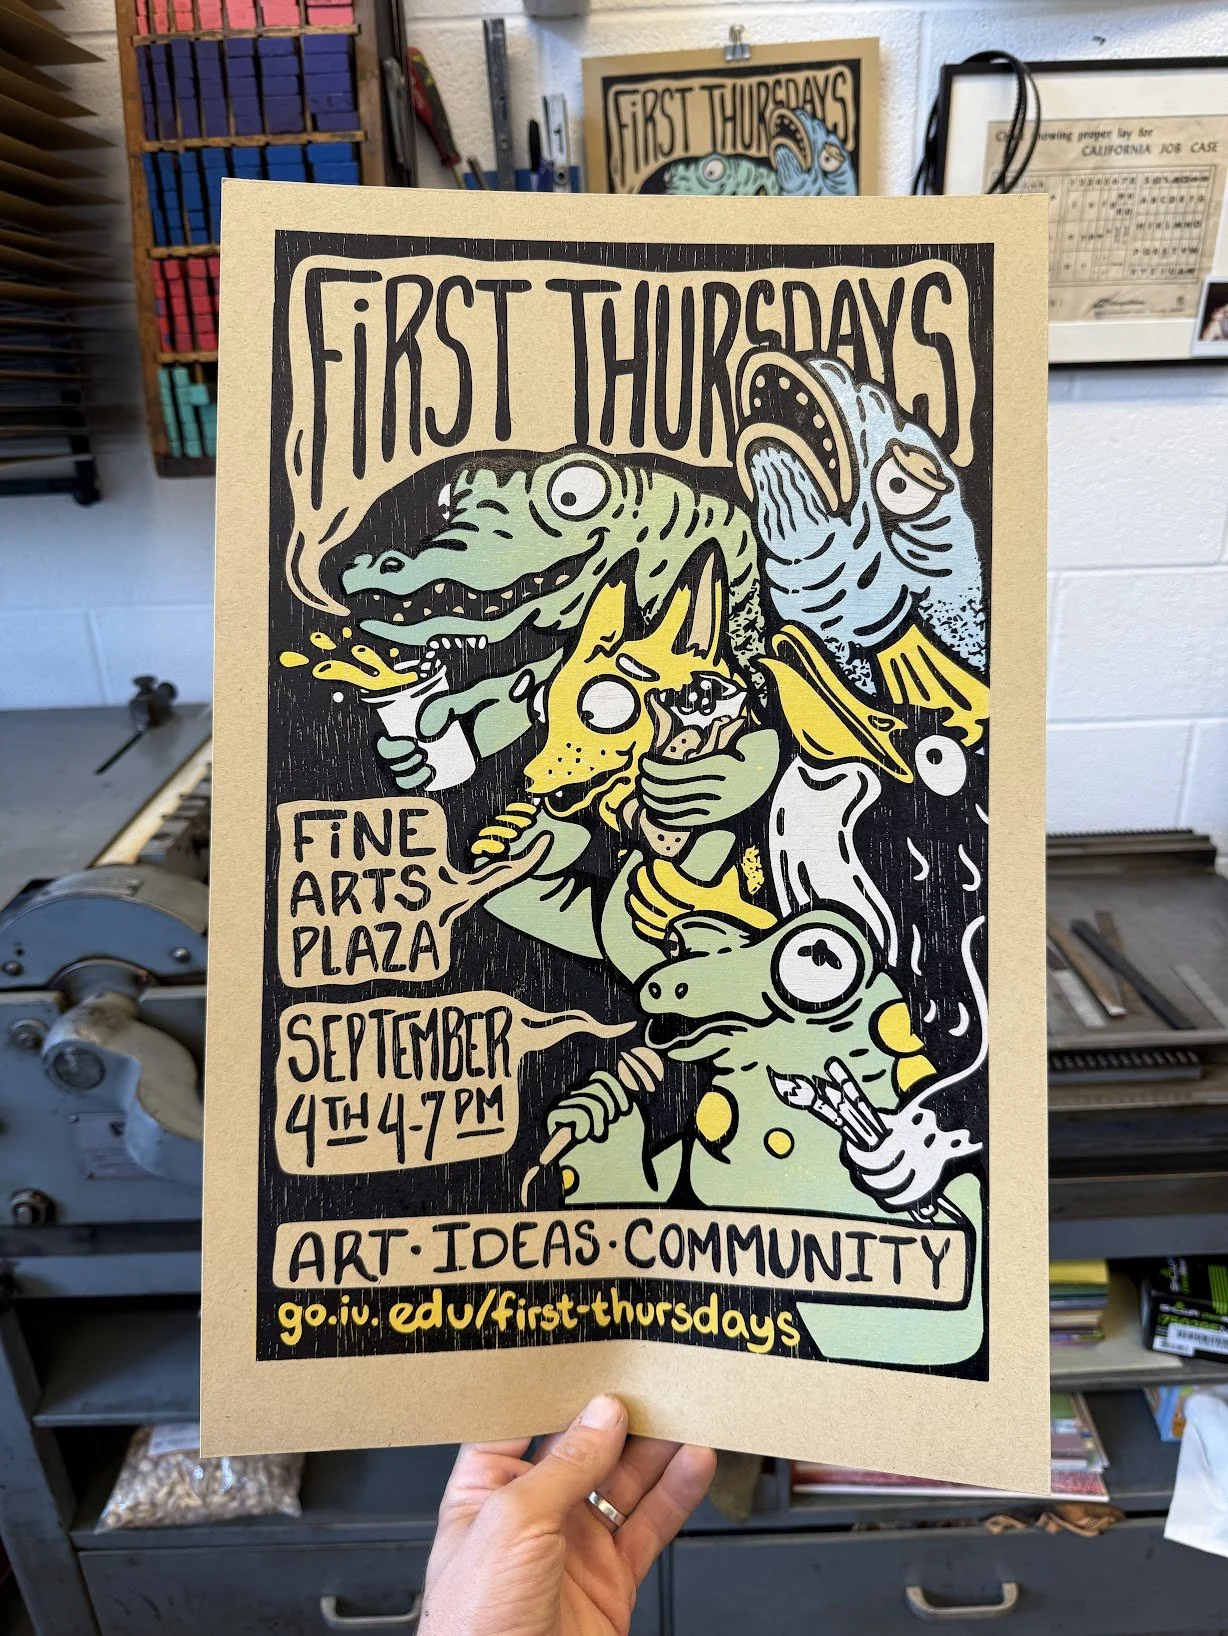 FiRST THURSDAYS
CALIFORNIA JOB CASE
FiRST THURSDAYS
FiNE
ARTS
PLAZA
SEPTEMBER
4TH 4-7 PM
ART·IDEAS·COMMUNITY
go.iu.edu/first-thursdays